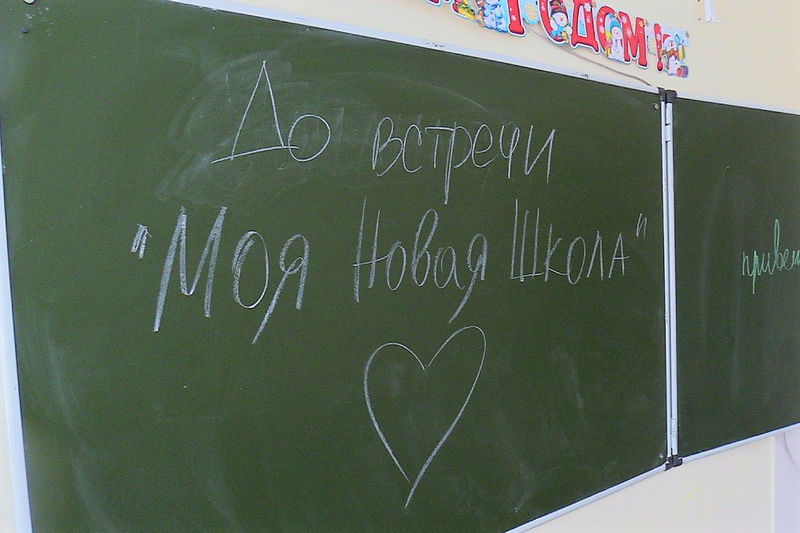 ГОДОМ!
До встречи
"Моя Новая Школа"
привет